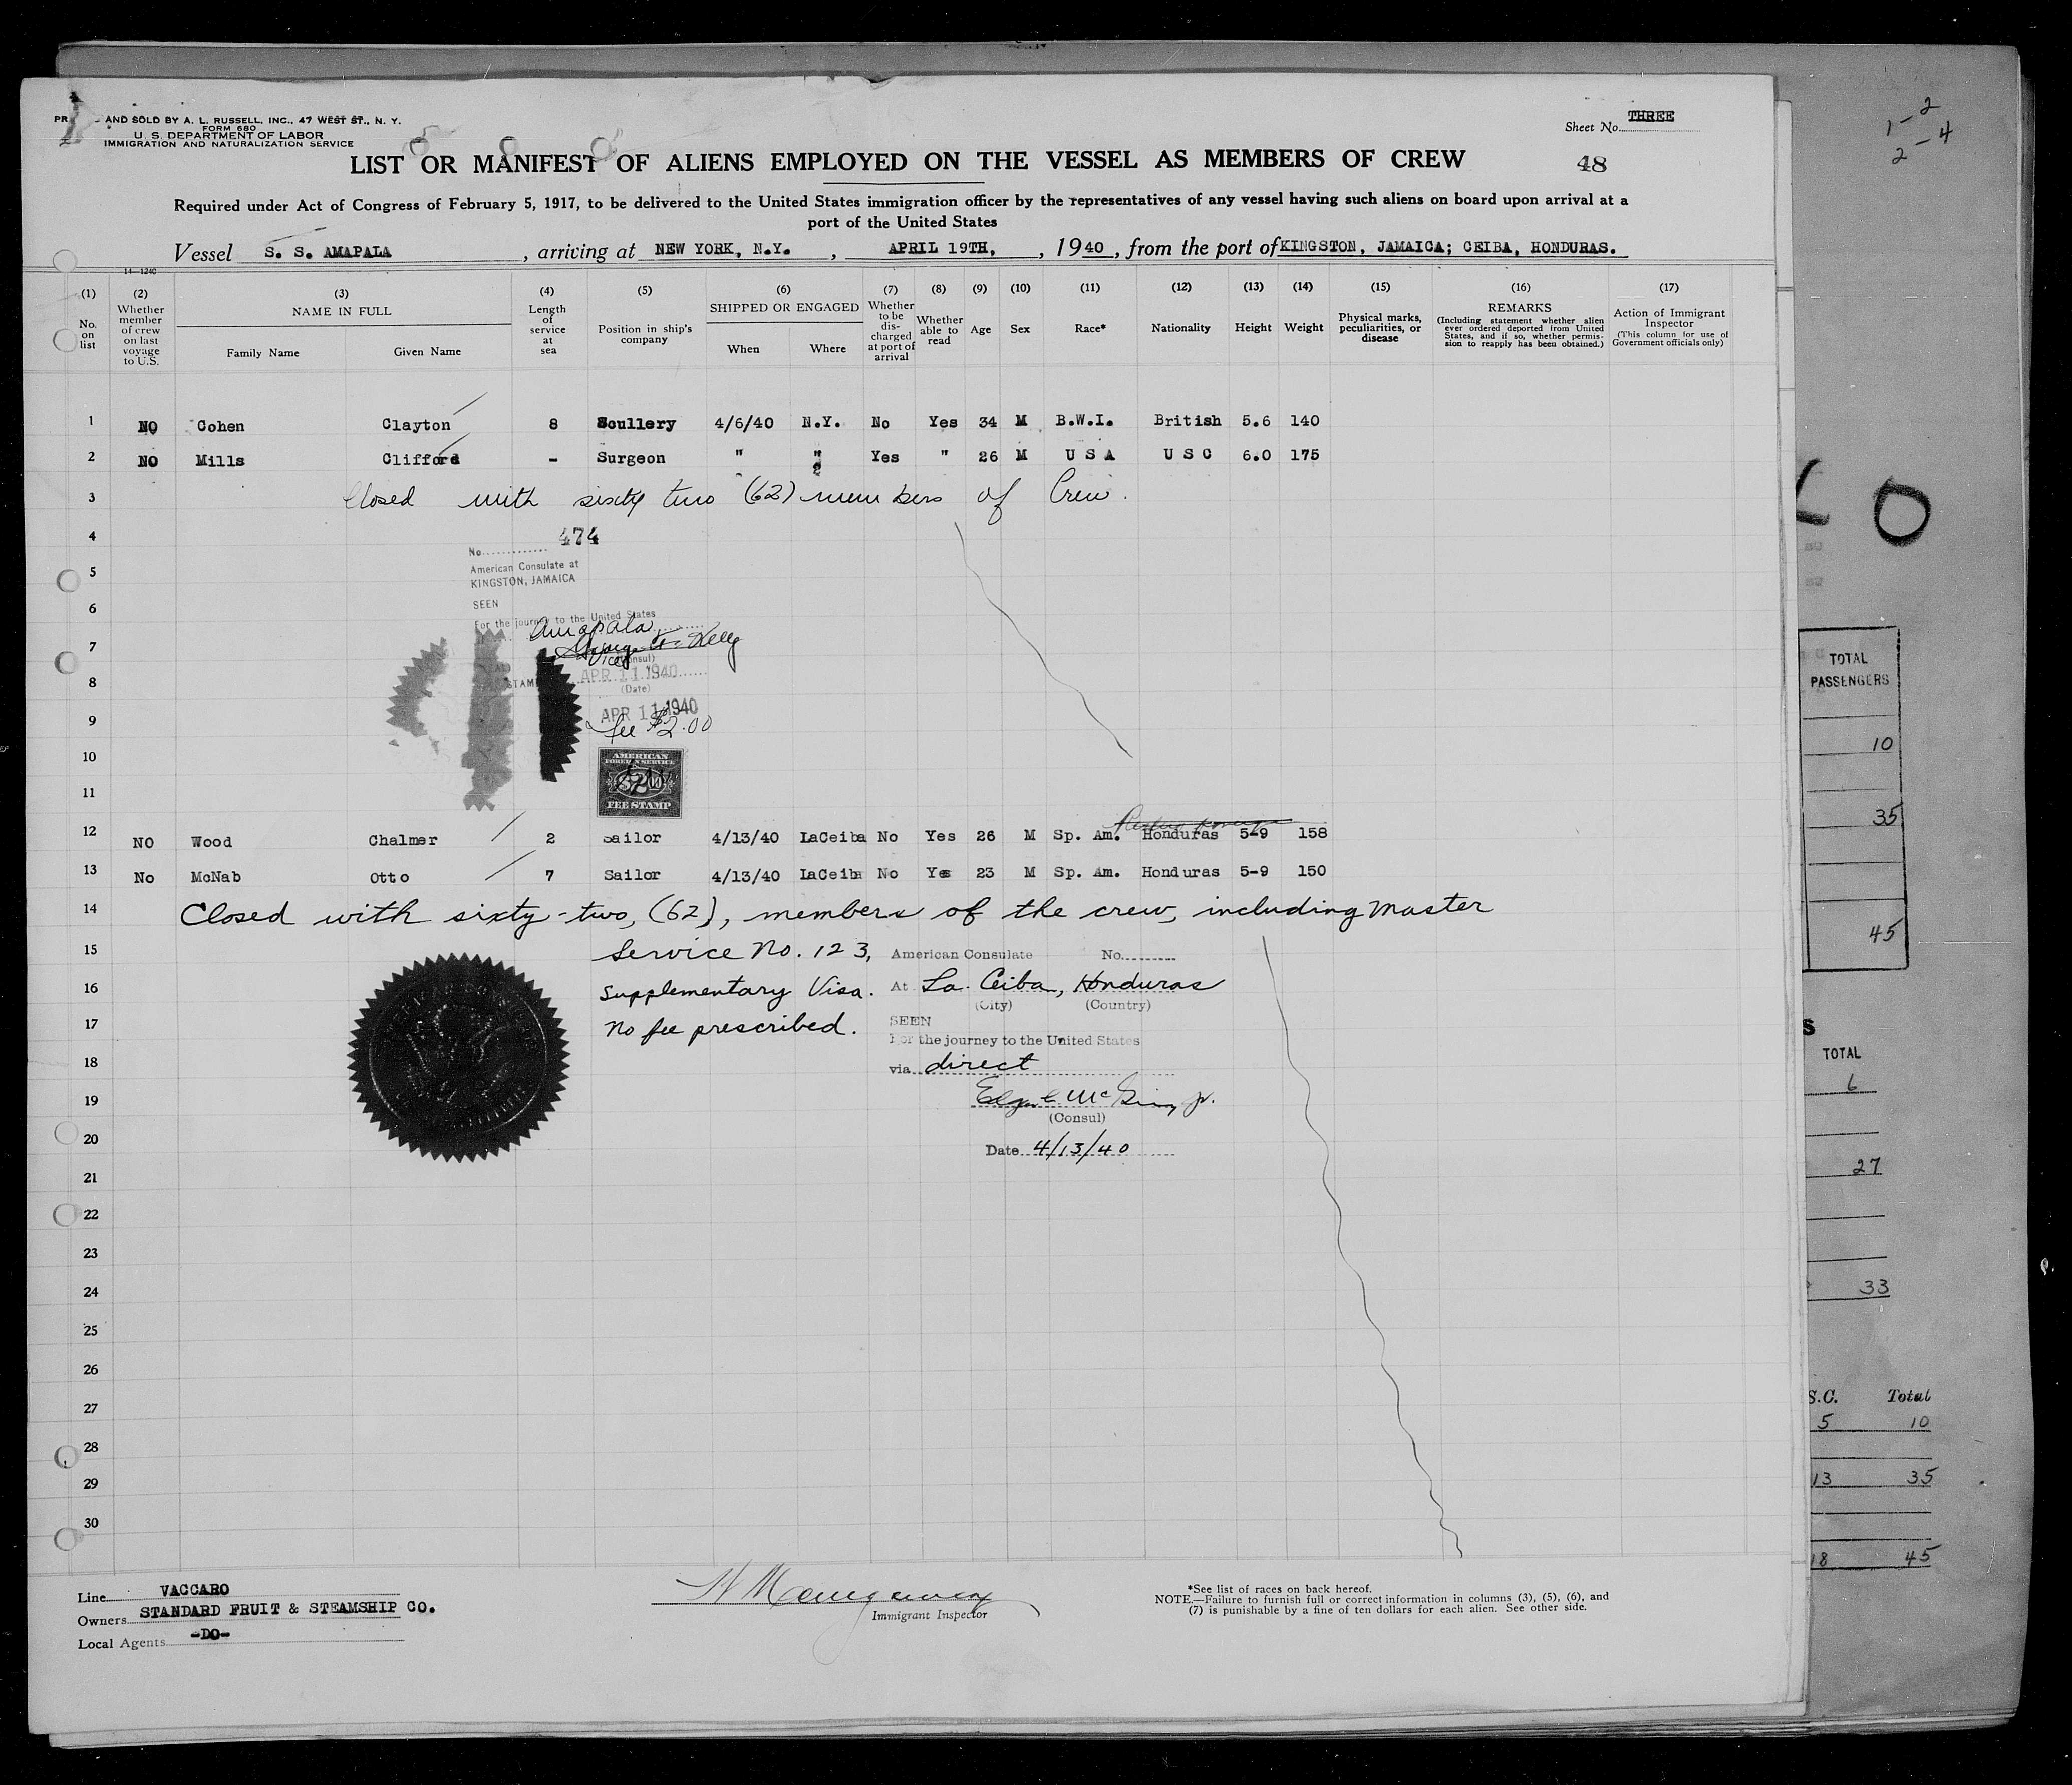 AND SOLD BY A. L. RUSSELL, INC., 47 WEST ST., N. Y.
FORM 680
U. S. DEPARTMENT OF LABOR
IMMIGRATION AND NATURALIZATION SERVICE
Sheet No. THREE
48
LIST OR MANIFEST OF ALIENS EMPLOYED ON THE VESSEL AS MEMBERS OF CREW
Required under Act of Congress of February 5, 1917, to be delivered to the United States immigration officer by the representatives of any vessel having such aliens on board upon arrival at a
port of the United States
Vessel S. S. AMAPALA, arriving at NEW YORK, N.Y., APRIL 19TH, 1940, from the port of KINGSTON, JAMAICA; CEIBA, HONDURAS.
14-1240
(1) No. on list
(2) Whether member of crew on last voyage to U.S.
(3) NAME IN FULL
Family Name Given Name
(4) Length of service at sea
(5) Position in ship's company
(6) SHIPPED OR ENGAGED
When Where
(7) Whether to be discharged at port of arrival
(8) Whether able to read
(9) Age
(10) Sex
(11) Race*
(12) Nationality
(13) Height
(14) Weight
(15) Physical marks, peculiarities, or disease
(16) REMARKS
(Including statement whether alien ever ordered deported from United States, and if so, whether permission to reapply has been obtained.)
(17) Action of Immigrant Inspector
(This column for use of Government officials only)
1 NO Cohen Clayton 8 Scullery 4/6/40 N.Y. No Yes 34 M B.W.I. British 5.6 140
2 NO Mills Clifford - Surgeon " " Yes " 26 M U S A U S C 6.0 175
3 Closed with sixty two (62) members of Crew.
4
No. 474
American Consulate at
5
KINGSTON, JAMAICA
6 SEEN
For the journey to the United States
Amapala
7 George F. Kelly
Vice (Consul)
8 APR 11 1940
(Date)
9 APR 11 1940
fee $2.00
10 AMERICAN
FOREIGN SERVICE
11 FEE STAMP
12 NO Wood Chalmer 2 Sailor 4/13/40 LaCeiba No Yes 26 M Sp. Am. Honduras 5-9 158
13 No McNab Otto 7 Sailor 4/13/40 LaCeiba No Yes 23 M Sp. Am. Honduras 5-9 150
14 Closed with sixty-two, (62), members of the crew, including Master
15 Service No. 123, American Consulate No.
16 Supplementary Visa. At La Ceiba, Honduras
(City) (Country)
17 No fee prescribed. SEEN
For the journey to the United States
18 via direct
19
(Consul)
20 Date 4/13/40
21
22
23
24
25
26
27
28
29
30
Line VACCARO
Owners STANDARD FRUIT & STEAMSHIP CO.
Local Agents -DO-
Immigrant Inspector
*See list of races on back hereof.
NOTE.—Failure to furnish full or correct information in columns (3), (5), (6), and
(7) is punishable by a fine of ten dollars for each alien. See other side.
1-2
2-4
TOTAL
PASSENGERS
10
35
45
TOTAL
6
27
33
S.C. Total
5 10
13 35
18 45